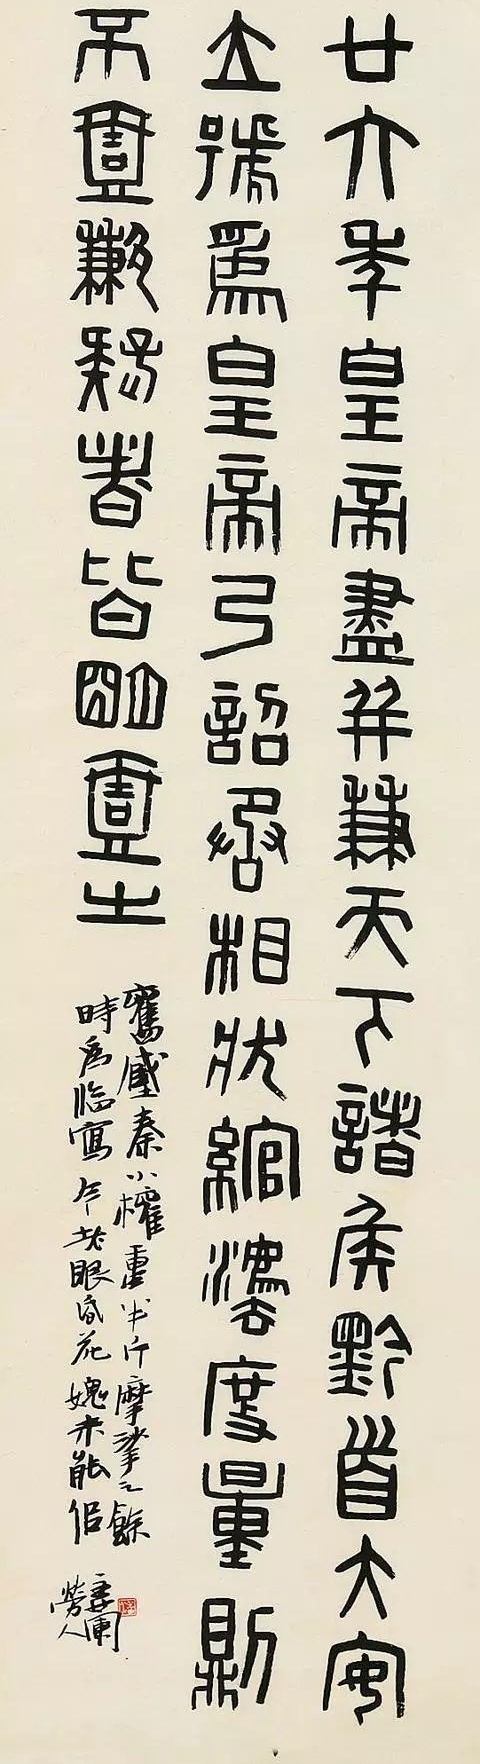 廿六年皇帝盡并兼天下諸侯黔首大安
立號為皇帝乃詔丞相狀綰灋度量則
不壹歉疑者皆明壹之
舊藏秦小權重半斤摩挲之餘
時為臨寫今老眼昏花媿未能佀
勞人